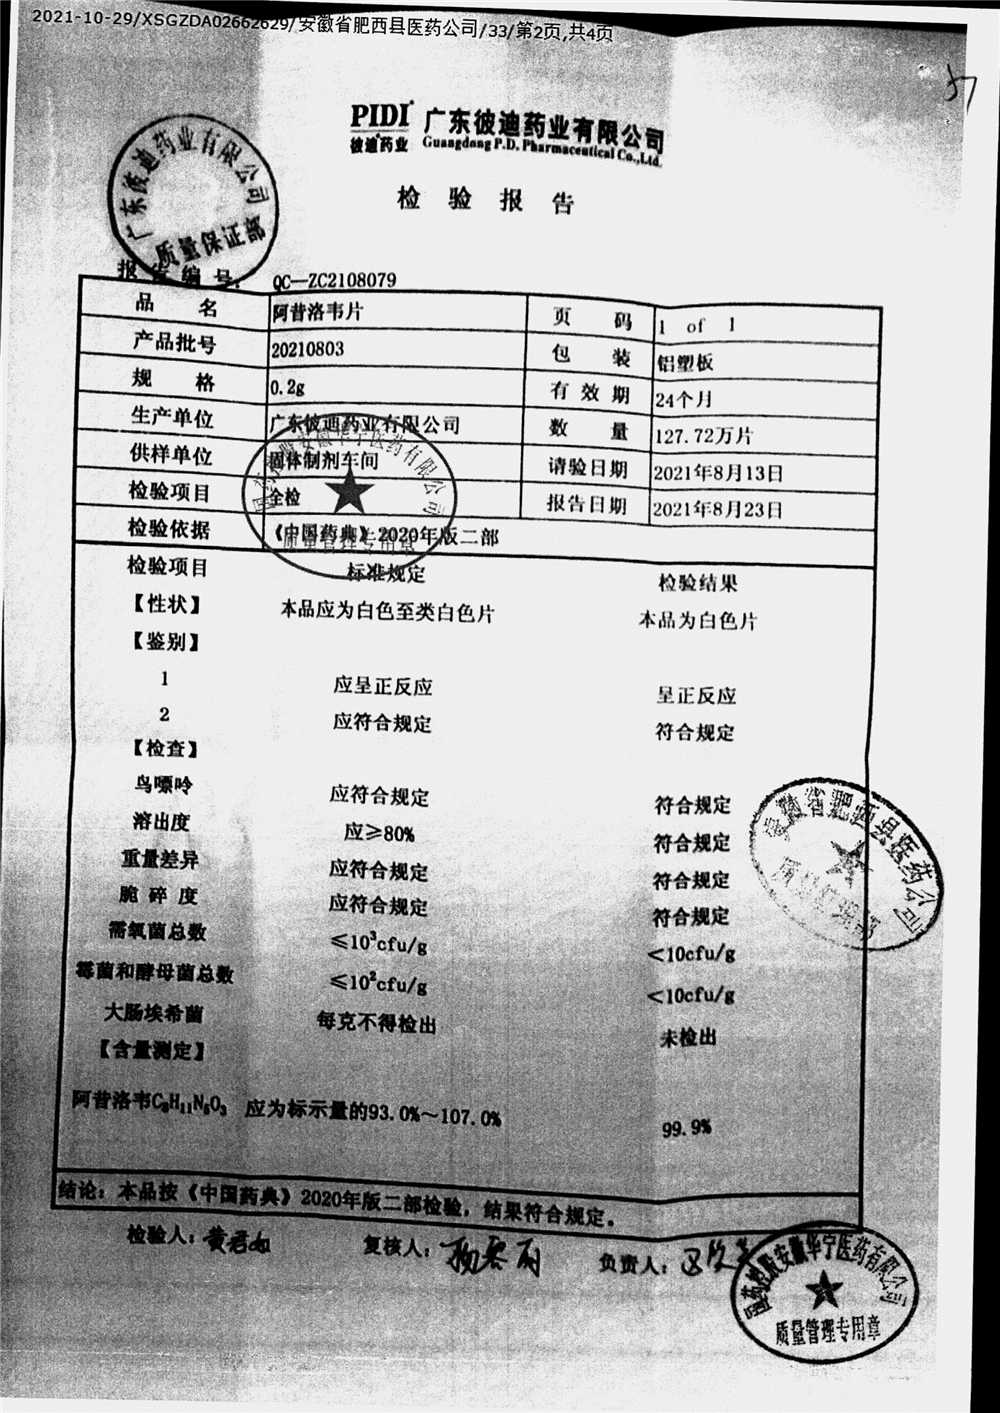 2021-10-29/XSGZDA02662629/安徽省肥西县医药公司/33/第2页,共4页
PIDI 广东彼迪药业有限公司
彼迪药业 Guangdong P.D. Pharmaceutical Co.,Ltd.
检 验 报 告
广东彼迪药业有限公司
质量保证部
报告编号: QC—ZC2108079
品 名 阿昔洛韦片 页 码 1 of 1
产品批号 20210803 包 装 铝塑板
规 格 0.2g 有 效 期 24个月
生产单位 广东彼迪药业有限公司 数 量 127.72万片
供样单位 固体制剂车间 请验日期 2021年8月13日
检验项目 全检 报告日期 2021年8月23日
检验依据 《中国药典》2020年版二部
国药控股安徽华宁医药有限公司
质量管理专用章
检验项目 标准规定 检验结果
【性状】 本品应为白色至类白色片 本品为白色片
【鉴别】
1 应呈正反应 呈正反应
2 应符合规定 符合规定
【检查】
鸟嘌呤 应符合规定 符合规定
溶出度 应≥80% 符合规定
重量差异 应符合规定 符合规定
脆 碎 度 应符合规定 符合规定
需氧菌总数 ≤10³cfu/g <10cfu/g
霉菌和酵母菌总数 ≤10²cfu/g <10cfu/g
大肠埃希菌 每克不得检出 未检出
【含量测定】
阿昔洛韦C₈H₁₁N₅O₃ 应为标示量的93.0%~107.0% 99.9%
安徽省肥西县医药公司
结论: 本品按《中国药典》2020年版二部检验, 结果符合规定。
检验人: 黄君如 复核人: 负责人:
国药控股安徽华宁医药有限公司
质量管理专用章